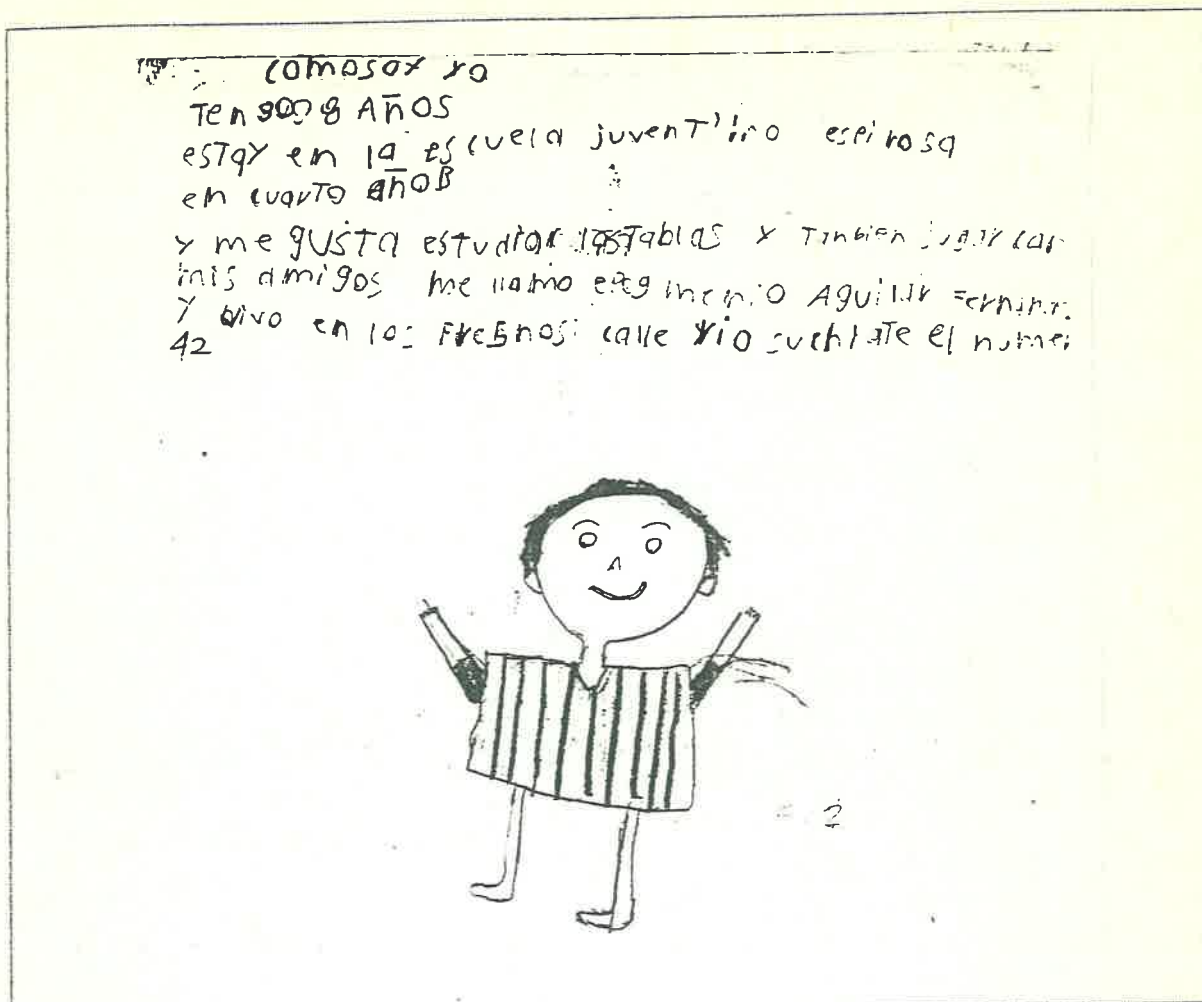 comosoy yo
Tengo 8 Años
estay en la escuela juventino espirosa
en cuarto añoB
y me gusta estudiar lasTablas y Tanbien jugar con
mis amigos me llamo Aguilar
y vivo en los Fresnos calle rio suchiaTe el numer
42
2